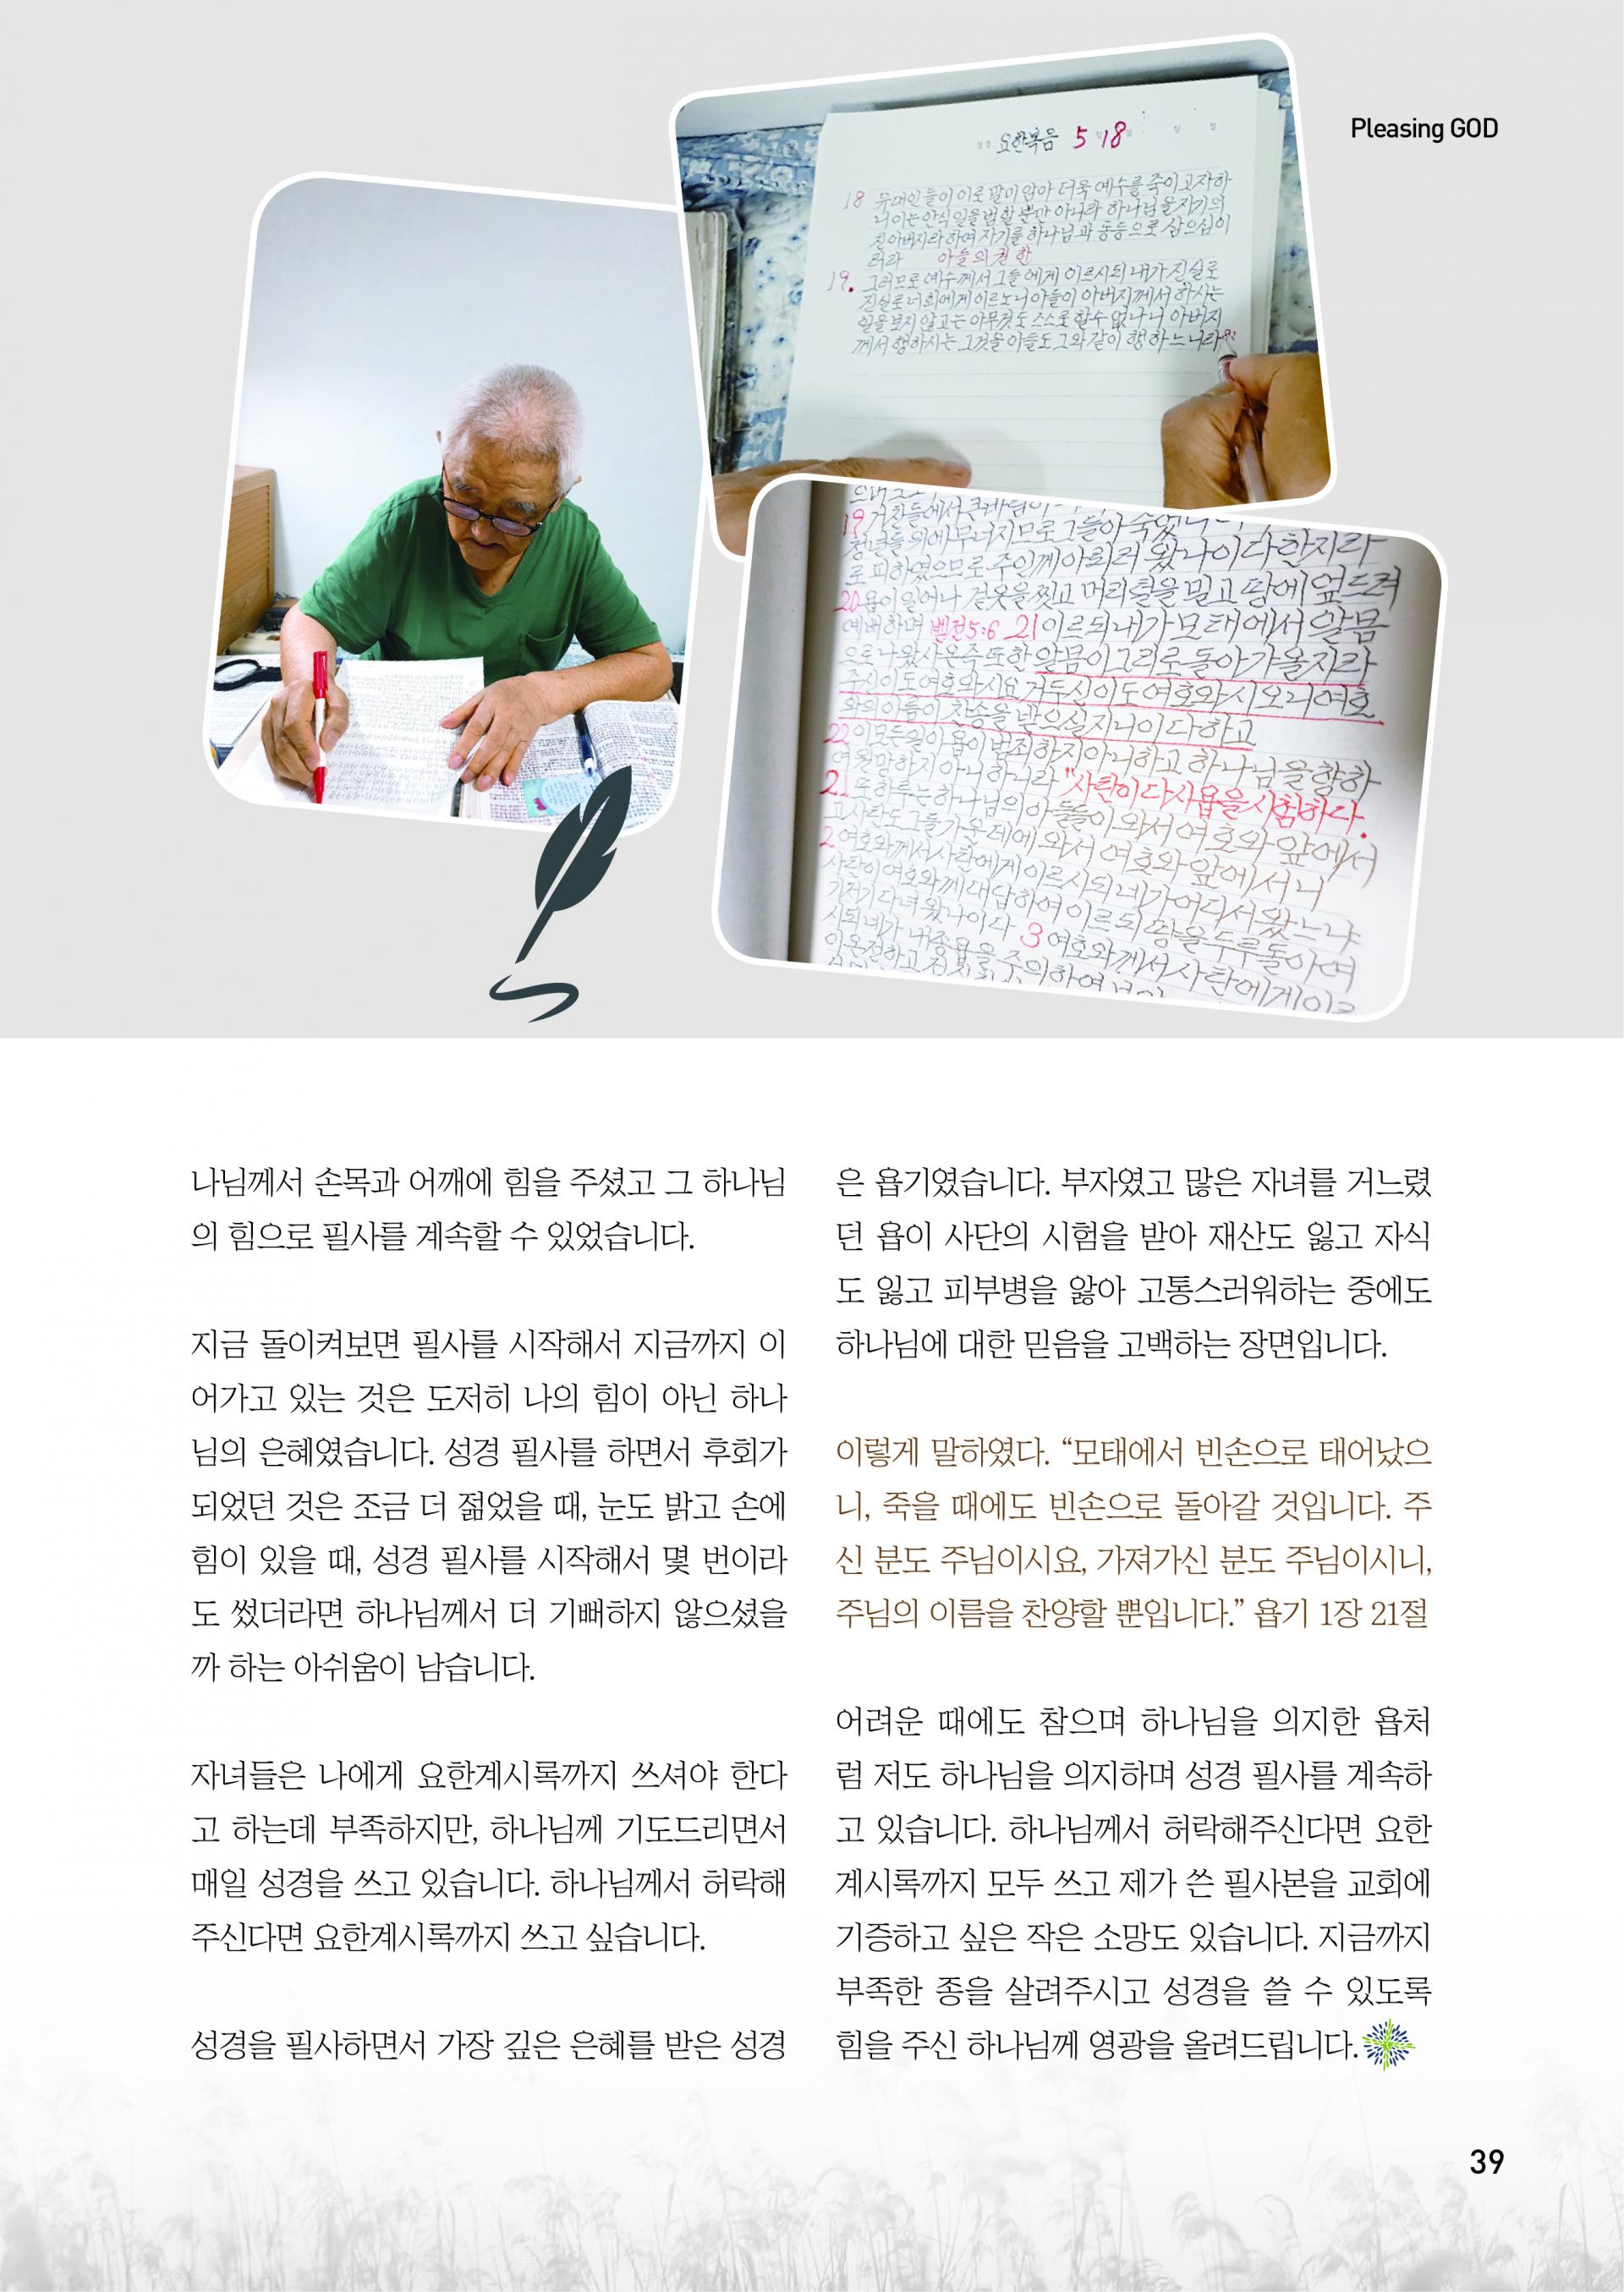 Pleasing GOD
요한복음 5 18
18 유대인들이 이로 말미암아 더욱 예수를 죽이고자하
니 이는 안식일을 범할 뿐만 아니라 하나님을 자기의
친아버지라 하여 자기를 하나님과 동등으로 삼으심이
러라 아들의 권한
19. 그러므로 예수께서 그들에게 이르시되 내가 진실로
진실로 너희에게 이르노니 아들이 아버지께서 하시는
일을 보지 않고는 아무것도 스스로 할수 없나니 아버지
께서 행하시는 그것을 아들도 그와 같이 행하느니라
청년들 위에 무너지므로 그들이 죽었
로 피하였으므로 주인께 아뢰러 왔나이다 한지라
20 욥이 일어나 겉옷을 찢고 머리털을 밀고 땅에 엎드려
예배하며 벧전5:6 21 이르되 내가 모태에서 알몸
으로 나왔사온즉 또한 알몸이 그리로 돌아가올지라
주신이도 여호와시요 거두신이도 여호와시오니 여호
와의 이름이 찬송을 받으실지니이다 하고
22 이 모든일에 욥이 범죄하지 아니하고 하나님을 향하
여 원망하지 아니하니라 "사탄이 다시 욥을 시험하다.
21 또 하루는 하나님의 아들들이 와서 여호와 앞에서
고 사탄도 그들 가운데에 와서 여호와 앞에 서니
2 여호와께서 사탄에게 이르시되 네가 어디서 왔느냐
사탄이 여호와께 대답하여 이르되 땅을 두루 돌아 여
기저기 다녀 왔나이다 3 여호와께서 사탄에게 이르
시되 네가 내 종 욥을 주의하여 보았
나님께서 손목과 어깨에 힘을 주셨고 그 하나님
의 힘으로 필사를 계속할 수 있었습니다.
지금 돌이켜보면 필사를 시작해서 지금까지 이
어가고 있는 것은 도저히 나의 힘이 아닌 하나
님의 은혜였습니다. 성경 필사를 하면서 후회가
되었던 것은 조금 더 젊었을 때, 눈도 밝고 손에
힘이 있을 때, 성경 필사를 시작해서 몇 번이라
도 썼더라면 하나님께서 더 기뻐하지 않으셨을
까 하는 아쉬움이 남습니다.
자녀들은 나에게 요한계시록까지 쓰셔야 한다
고 하는데 부족하지만, 하나님께 기도드리면서
매일 성경을 쓰고 있습니다. 하나님께서 허락해
주신다면 요한계시록까지 쓰고 싶습니다.
성경을 필사하면서 가장 깊은 은혜를 받은 성경
은 욥기였습니다. 부자였고 많은 자녀를 거느렸
던 욥이 사단의 시험을 받아 재산도 잃고 자식
도 잃고 피부병을 앓아 고통스러워하는 중에도
하나님에 대한 믿음을 고백하는 장면입니다.
이렇게 말하였다. “모태에서 빈손으로 태어났으
니, 죽을 때에도 빈손으로 돌아갈 것입니다. 주
신 분도 주님이시요, 가져가신 분도 주님이시니,
주님의 이름을 찬양할 뿐입니다.” 욥기 1장 21절
어려운 때에도 참으며 하나님을 의지한 욥처
럼 저도 하나님을 의지하며 성경 필사를 계속하
고 있습니다. 하나님께서 허락해주신다면 요한
계시록까지 모두 쓰고 제가 쓴 필사본을 교회에
기증하고 싶은 작은 소망도 있습니다. 지금까지
부족한 종을 살려주시고 성경을 쓸 수 있도록
힘을 주신 하나님께 영광을 올려드립니다.
39